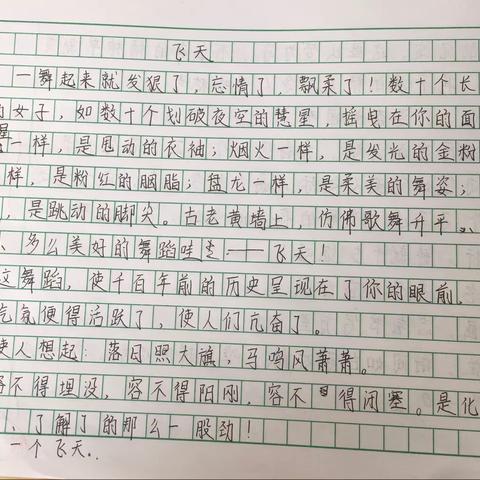 飞天
一舞起来就发狠了，忘情了，飘柔了！数十个长
的女子，如数十个划破夜空的慧星，摇曳在你的面
一样，是甩动的衣袖；烟火一样，是发光的金粉
样，是粉红的胭脂；猛龙一样，是柔美的舞姿；
，是跳动的脚尖。古老黄墙上，仿佛歌舞升平。
、多么美好的舞蹈哇！——飞天！
这舞蹈，使千百年前的历史呈现在了你的眼前，
气氛便得活跃了，使人们亢奋了。
使人想起：落日照大旗，马鸣风萧萧。
容不得埋没，容不得阳刚，容不得闭塞。是化
、了解了的那么一股劲！
一个飞天..